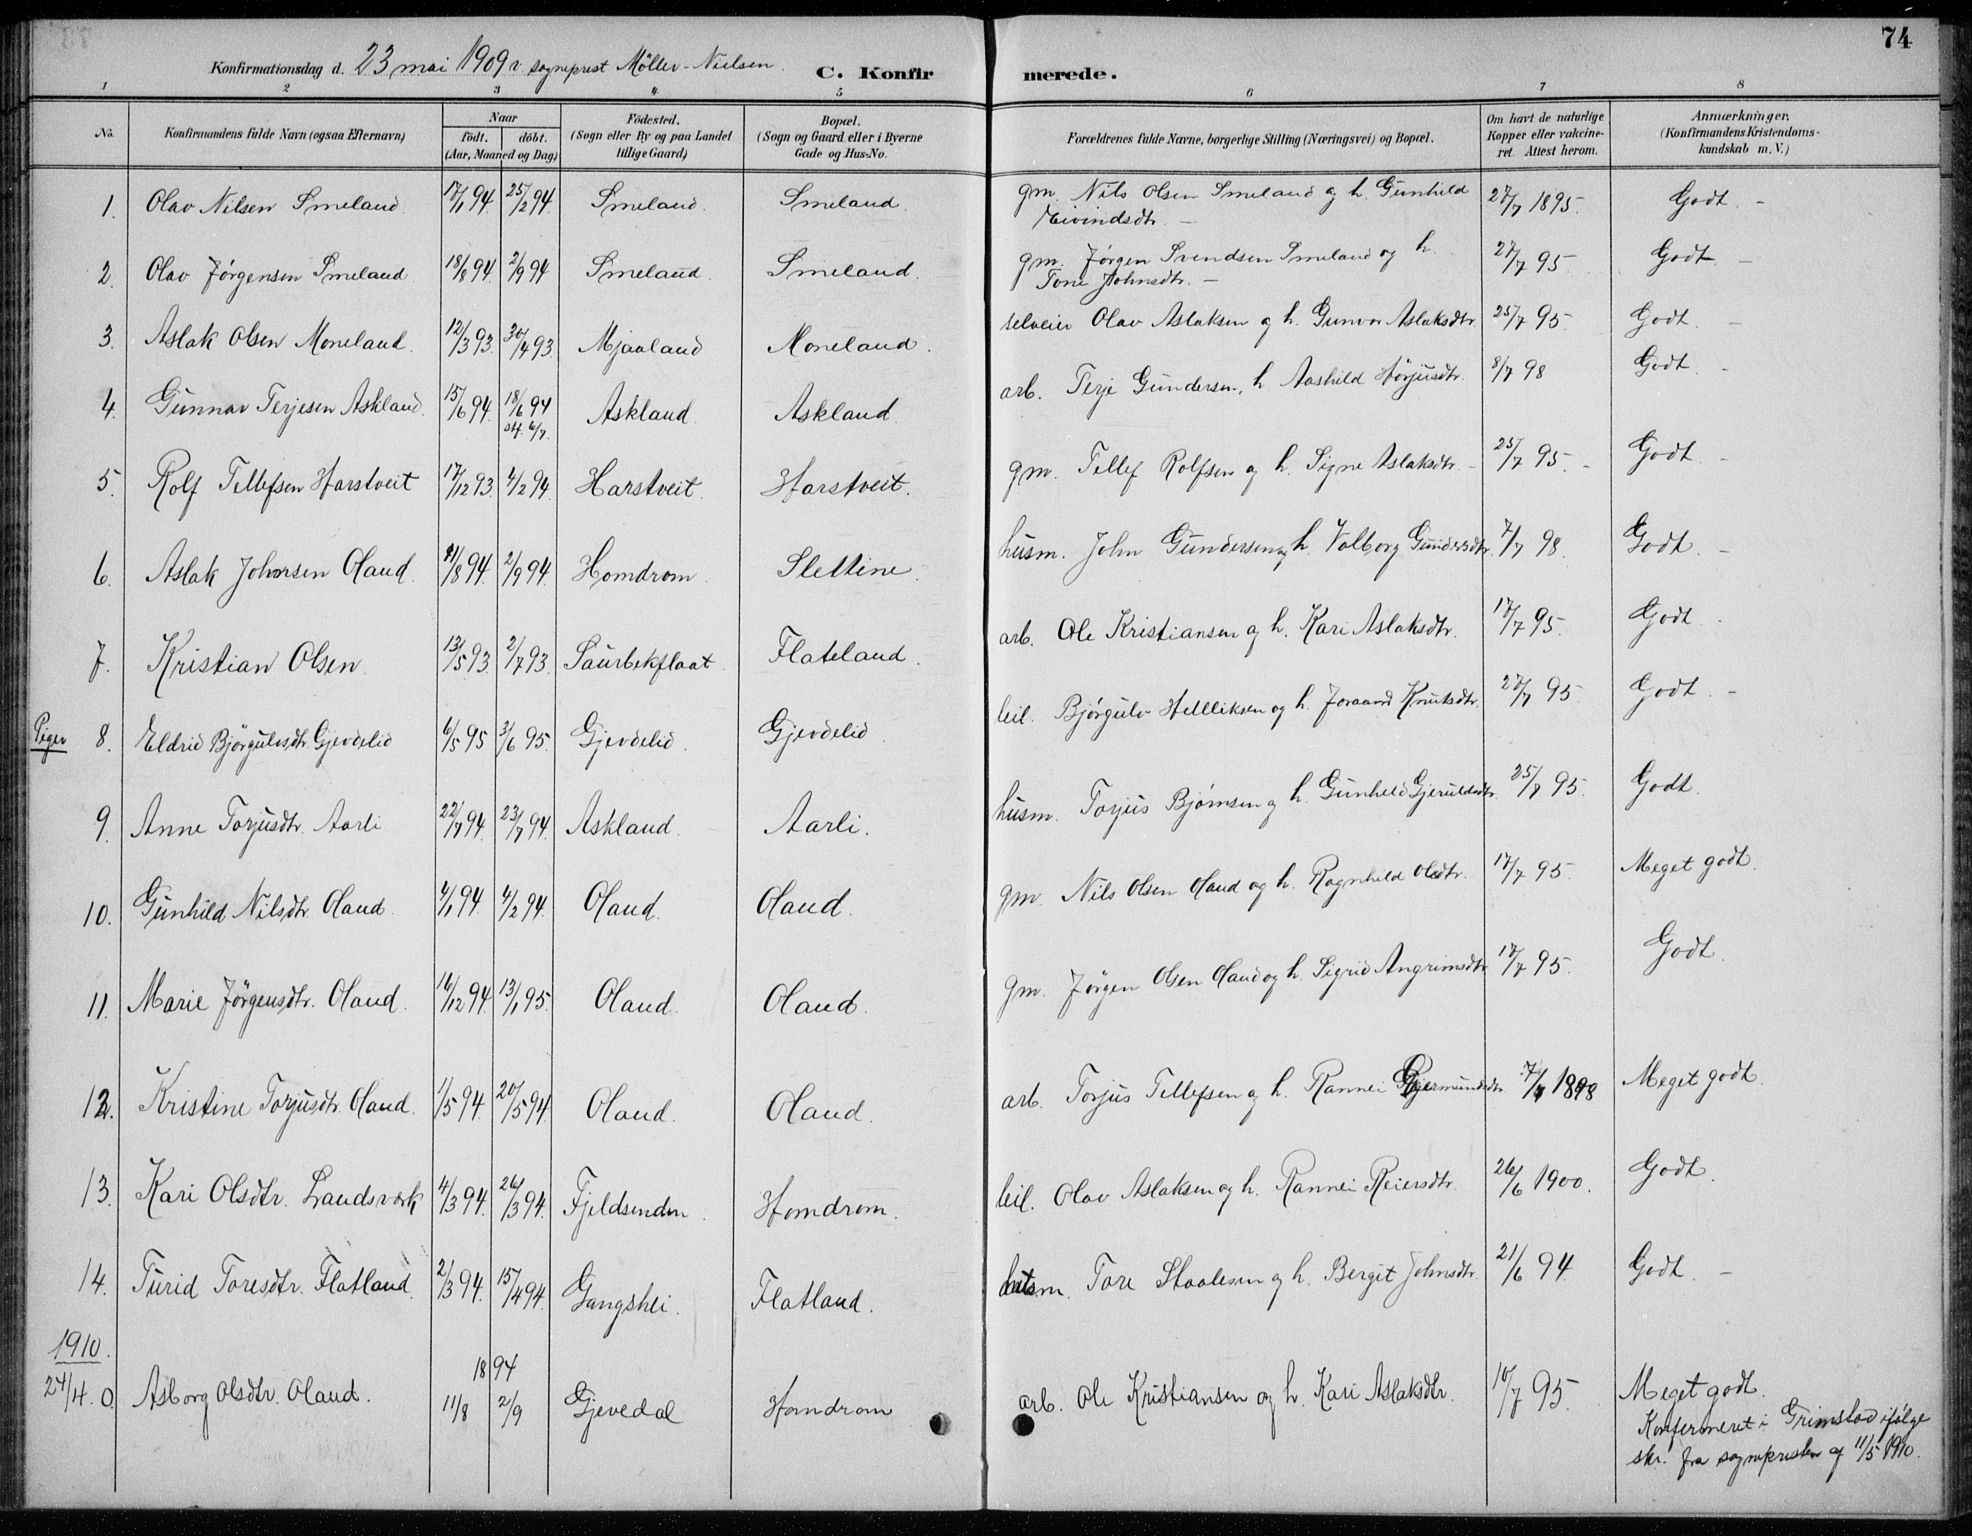 74
Konfirmationsdag d. 23 mai 1909 v sogneprest Møller-Nielsen. C. Konfirmerede.
1 2 3 4 5 6 7 8
No. Konfirmandens fulde Navn (ogsaa Efternavn) Naar født. døbt. (Aar, Maaned og Dag) Fødested. (Sogn eller By og paa Landet tillige Gaard) Bopæl. (Sogn og Gaard eller i Byerne Gade og Hus-No. Forældrenes fulde Navne, borgerlige Stilling (Næringsvei) og Bopæl. Om havt de naturlige Kopper eller vakcineret. Attest herom. Anmærkninger, (Konfirmandens Kristendomskundskab m. V.)
1. Olav Nilsen Smeland 17/1 94. 25/2 94. Smeland. Smeland. gm. Nils Olsen Smeland og h. Gunhild Eivindsdtr. — 27/7 1895. Godt. —
2. Olav Jørgensen Smeland 18/8 94 2/9 94 Smeland. Smeland. gm. Jørgen Svendsen Smeland og h. Tone Johnsdtr. — 27/7 95. Godt. —
3. Aslak Olsen Moneland. 12/3 93. 30/4 93 Mjaaland Moneland. selveier Olav Aslaksen og h. Gunvor Aslaksdtr. 25/7 95. Godt. —
4. Gunnar Terjesen Askland. 15/6 94. 18/6 94 stf. 6/7. Askland. Askland. arb. Terje Gundersen, h. Aashild Torjusdtr. 8/7 98 Godt. —
5. Rolf Tellefsen Harstveit 17/12 93. 4/2 94. Harstveit. Harstveit. gm. Tellef Rolfsen og h. Signe Aslaksdtr. — 25/7 95. — Godt. —
6. Aslak Johnsen Oland. 11/8 94. 2/9 94. Homdrom. Slettine. husm. John Gundersen og h. Valborg Gundersdtr. 7/7 98. Godt. —
7. Kristian Olsen. 13/5 93. 2/7 93. Saurbekflaat. Flateland. arb. Ole Kristiansen og h. Kari Aslaksdtr. 17/7 95. Godt.
Piger 8. Eldrid Bjørgulvsdtr. Gjevdelid 6/5 95 3/6 95. Gjevdelid. Gjevdelid. leil. Bjørgulv Helliksen og h. Joraand Knutsdtr. 27/7 95. Godt. —
9. Anne Torjusdtr. Aarli 22/7 94. 23/7 94. Askland. Aarli. husm. Torjus Bjørnsen og h. Gunhild Gjeruldsdtr. 25/7 95. Godt.
10. Gunhild Nilsdtr. Oland. 4/1 94. 4/2 94. Oland. Oland. gm. Nils Olsen Oland og h. Ragnhild Olsdtr. 17/7 95. Meget godt.
11. Marie Jørgensdtr. Oland. 16/12 94. 13/1 95. Oland. Oland. gm. Jørgen Olsen Oland og h. Sigrid Angrimsdtr. 17/7 95. Godt.
12. Kristine Torjusdtr. Oland. 1/5 94. 20/5 94. Oland. Oland. arb. Torjus Tellefsen og h. Rannei Gjermundsdtr 7/7 1898 Meget godt.
13. Kari Olsdtr. Landsverk 4/3 94. 26/3 94. Fjeldsenden. Homdrom. leil. Olav Aslaksen og h. Rannei Reiersdtr. 26/6 1900. Godt.
14. Turid Toresdtr. Flatland. 2/3 94. 15/4 94. Gangshei. Flatland. husm. Tore Staalesen og h. Bergit Johnsdtr. 21/6 94. Godt. —
1910.
24/4. 0. Asborg Olsdtr. Oland. 1894 11/8 2/9 Gjevedal Homdrom arb. Ole Kristiansen og h. Kari Aslaksdtr. 10/7 95. Meget godt.
Konfermeret i Grimstad ifølge
skr. fra sognepresten af 11/5 1910.